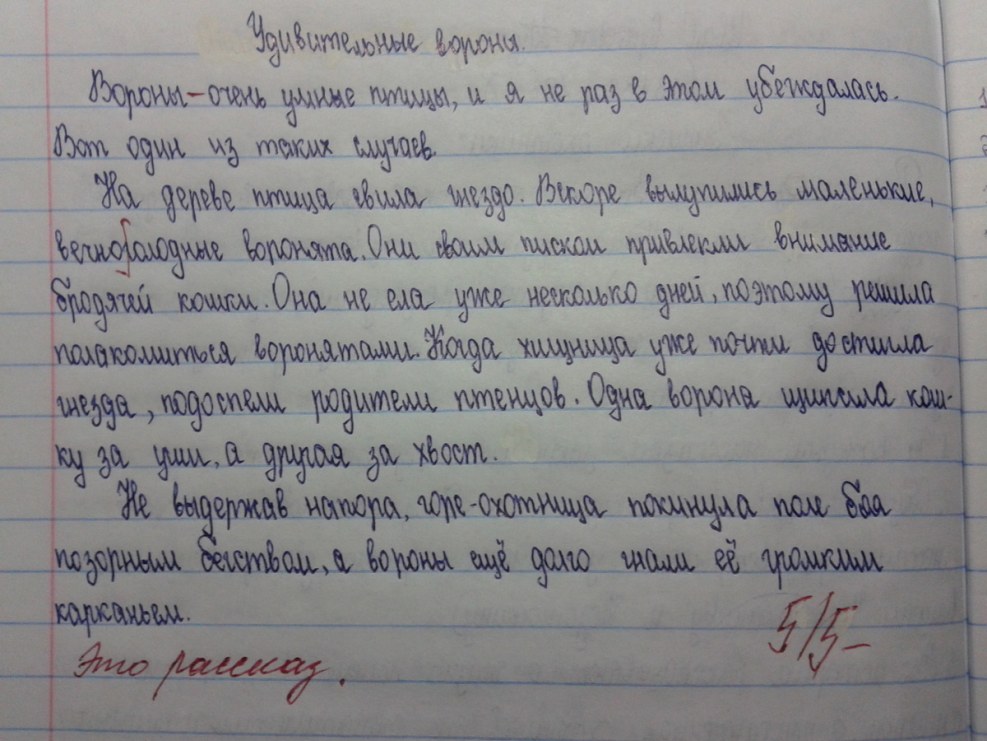 Удивительные вороны.
Вороны – очень умные птицы, и я не раз в этом убеждалась.
Вот один из таких случаев.
На дереве птица свила гнездо. Вскоре вылупились маленькие,
вечноголодные воронята. Они своим писком привлекли внимание
бродячей кошки. Она не ела уже несколько дней, поэтому решила
полакомиться воронятами. Когда хищница уже почти достигла
гнезда, подоспели родители птенцов. Одна ворона щипала кош-
ку за уши, а другая за хвост.
Не выдержав напора, горе-охотница покинула поле боя
позорным бегством, а вороны ещё долго гнали её громким
карканьем.
5/5-
Это рассказ.